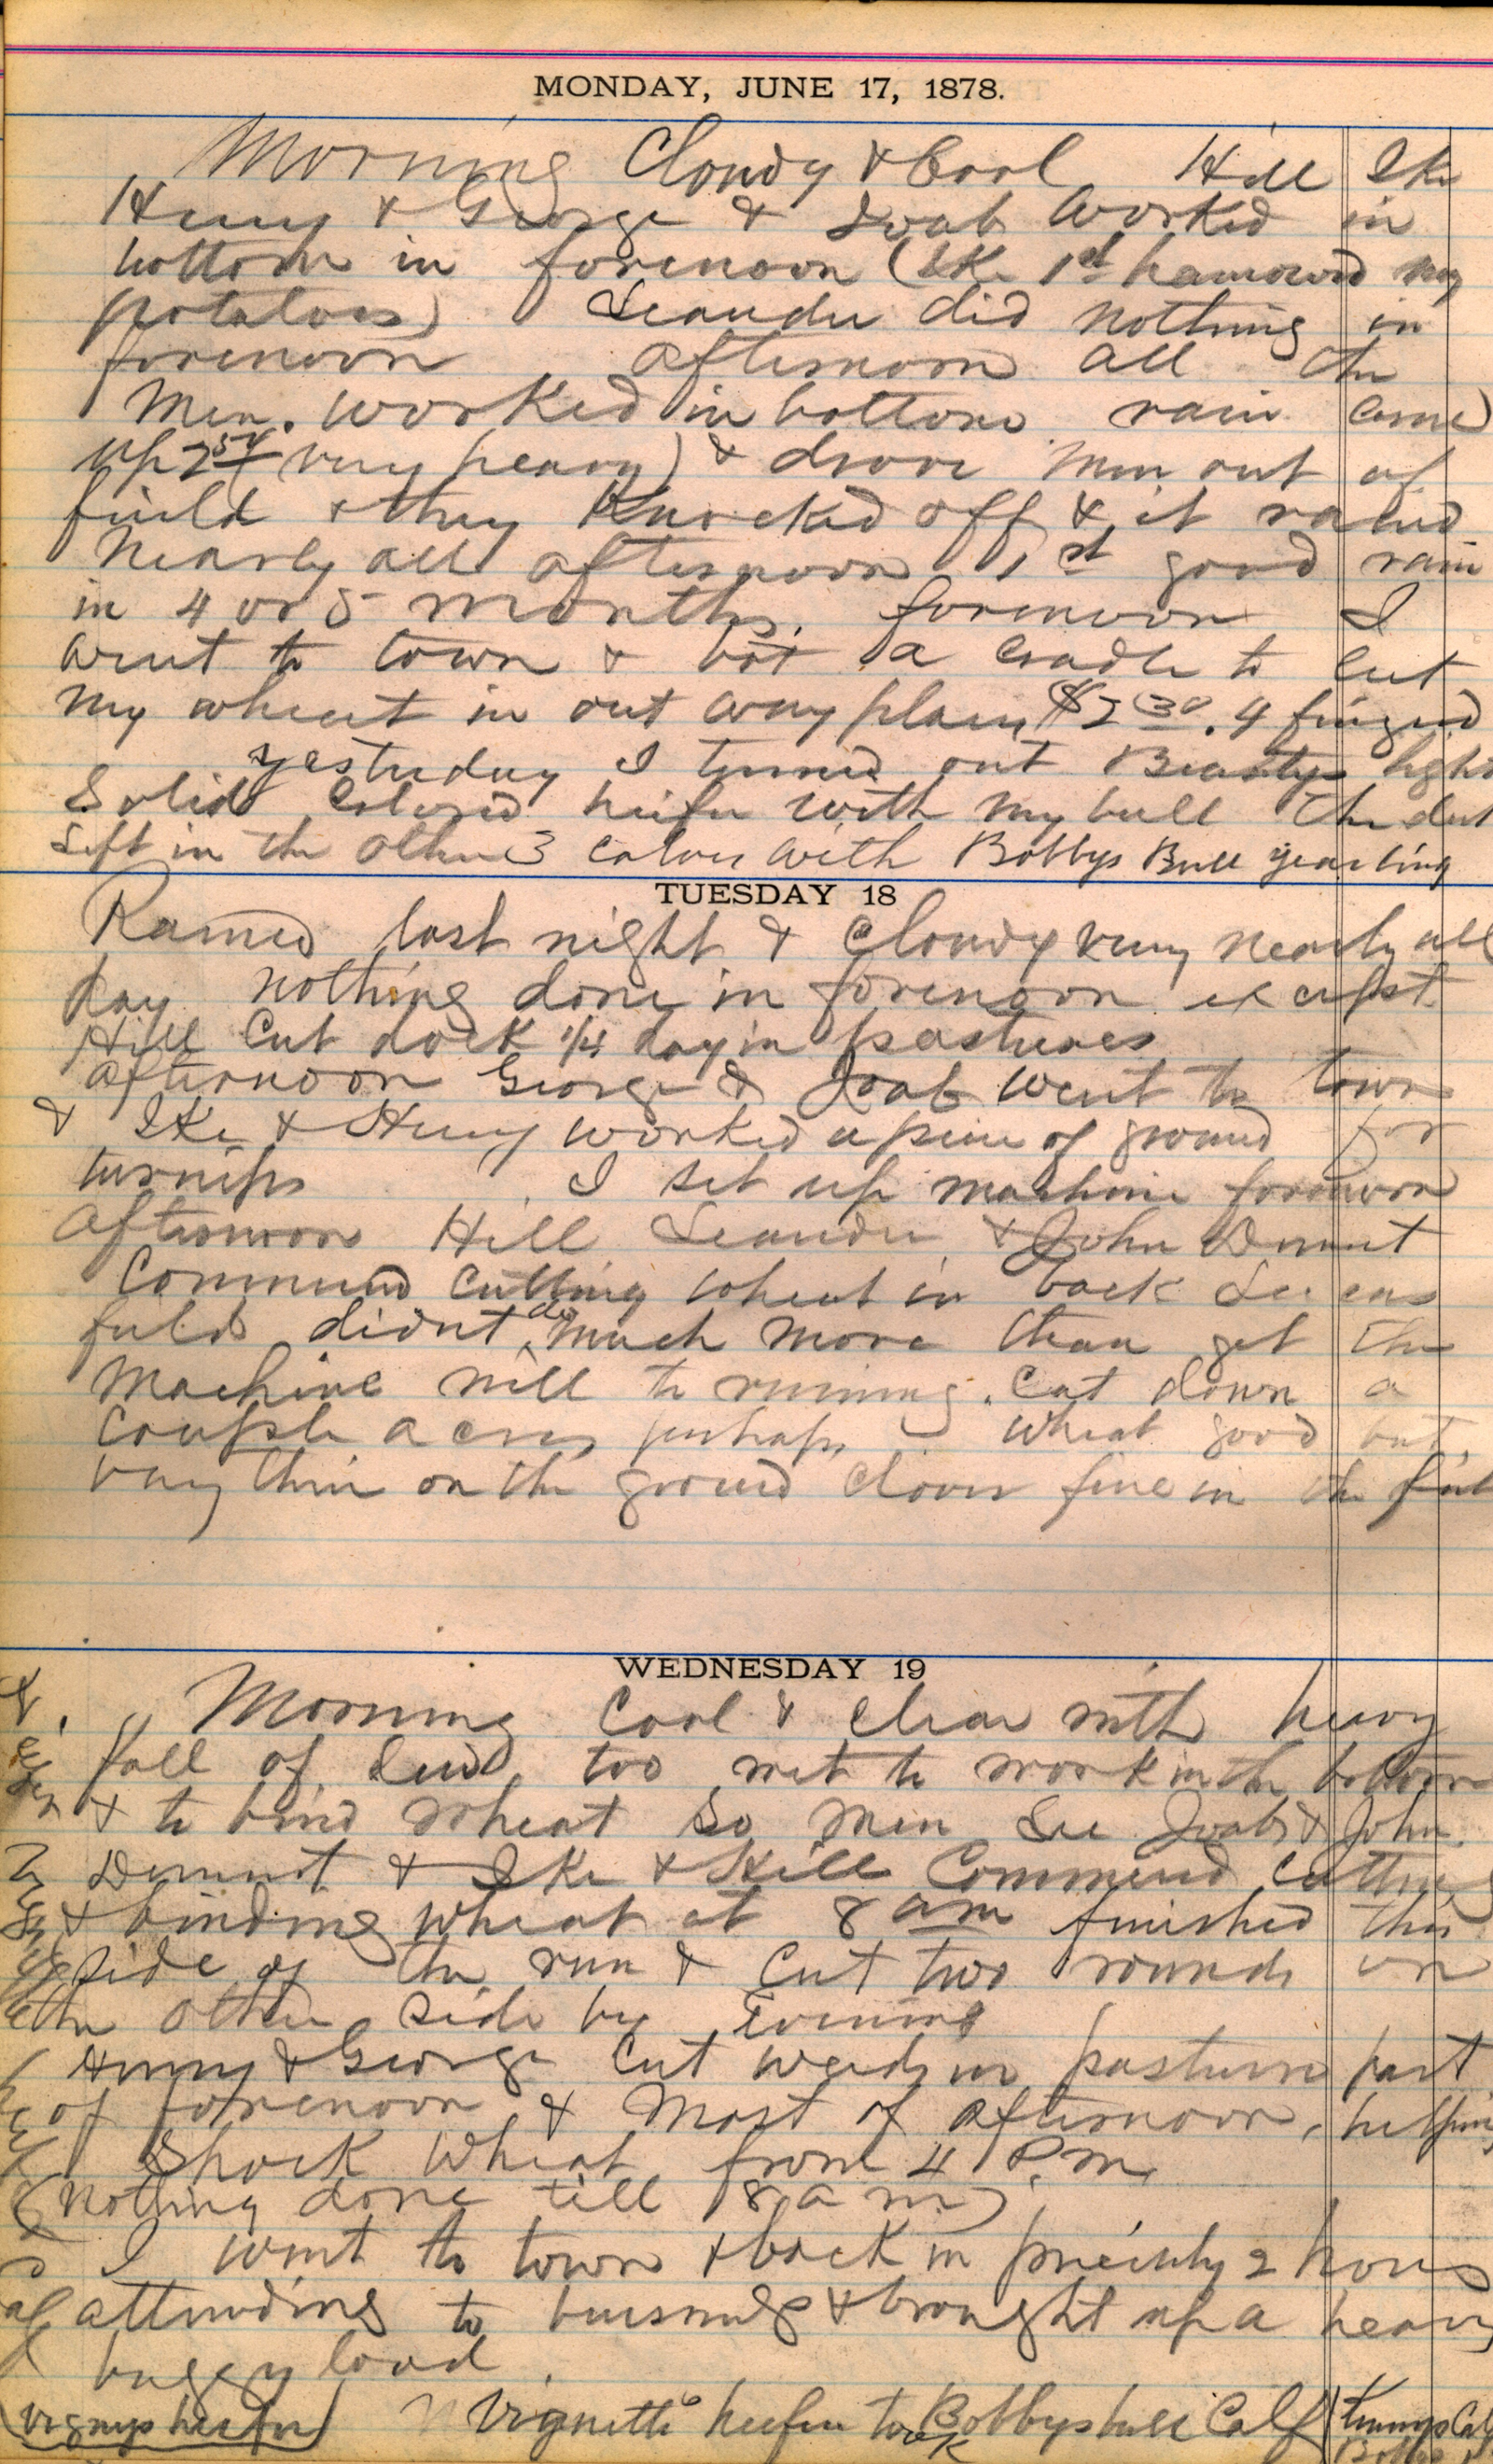 MONDAY, JUNE 17, 1878.
Morning Cloudy & Cool Hill Ike
Henry & George & Joab Worked in
bottom in forenoon (Ike 1st harrowed my
potatoes) Leander did nothing in
forenoon afternoon all the
Men. worked in bottom rain come
up very heavy) & drove men out of
field & they Knocked off & it rained
Nearly all afternoon 1st good rain
in 4 or 5 months. forenoon I
went to town & bot a cradle to cut
my wheat in out away places $2 30. 4 fingered
yesterday I turned out Beautys light
Solid Colored heifer with my bull
Left in the other 3 calves with Bobbys Bull yearling
TUESDAY 18
Rained last night & Cloudy very nearly all
day nothing done in forenoon except
Hill Cut dock 1/4 day in pastures
afternoon George & Joab went to town
& Ike & Henry worked a piece of ground for
turnips I set up machine forenoon
afternoon Hill Leander & John Demut
Commend Cutting wheat in back
field didnt do much more than get the
Machine well to running. Cut down a
Couple acres perhaps. Wheat good but
very thin on the ground clover fine in the field
WEDNESDAY 19
Morning Cool & Clear with heavy
fall of dew too wet to work in the bottom
& to bind wheat so men Lee Joab & John
Demut & Ike & Hill Commend Cutting
& binding wheat at 8 am finished this
side of the run & Cut two rounds on
the other side by Evening
Henry & George Cut weeds in pasture part
of forenoon & Most of afternoon, helping
Shock Wheat from 4 P.m.
(Nothing done till 8 a m)
I went to town & back in precisely 2 hours
attending to business & brought up a heavy
buggy load
heifer Vignette heefer took Bobbys bull Calf